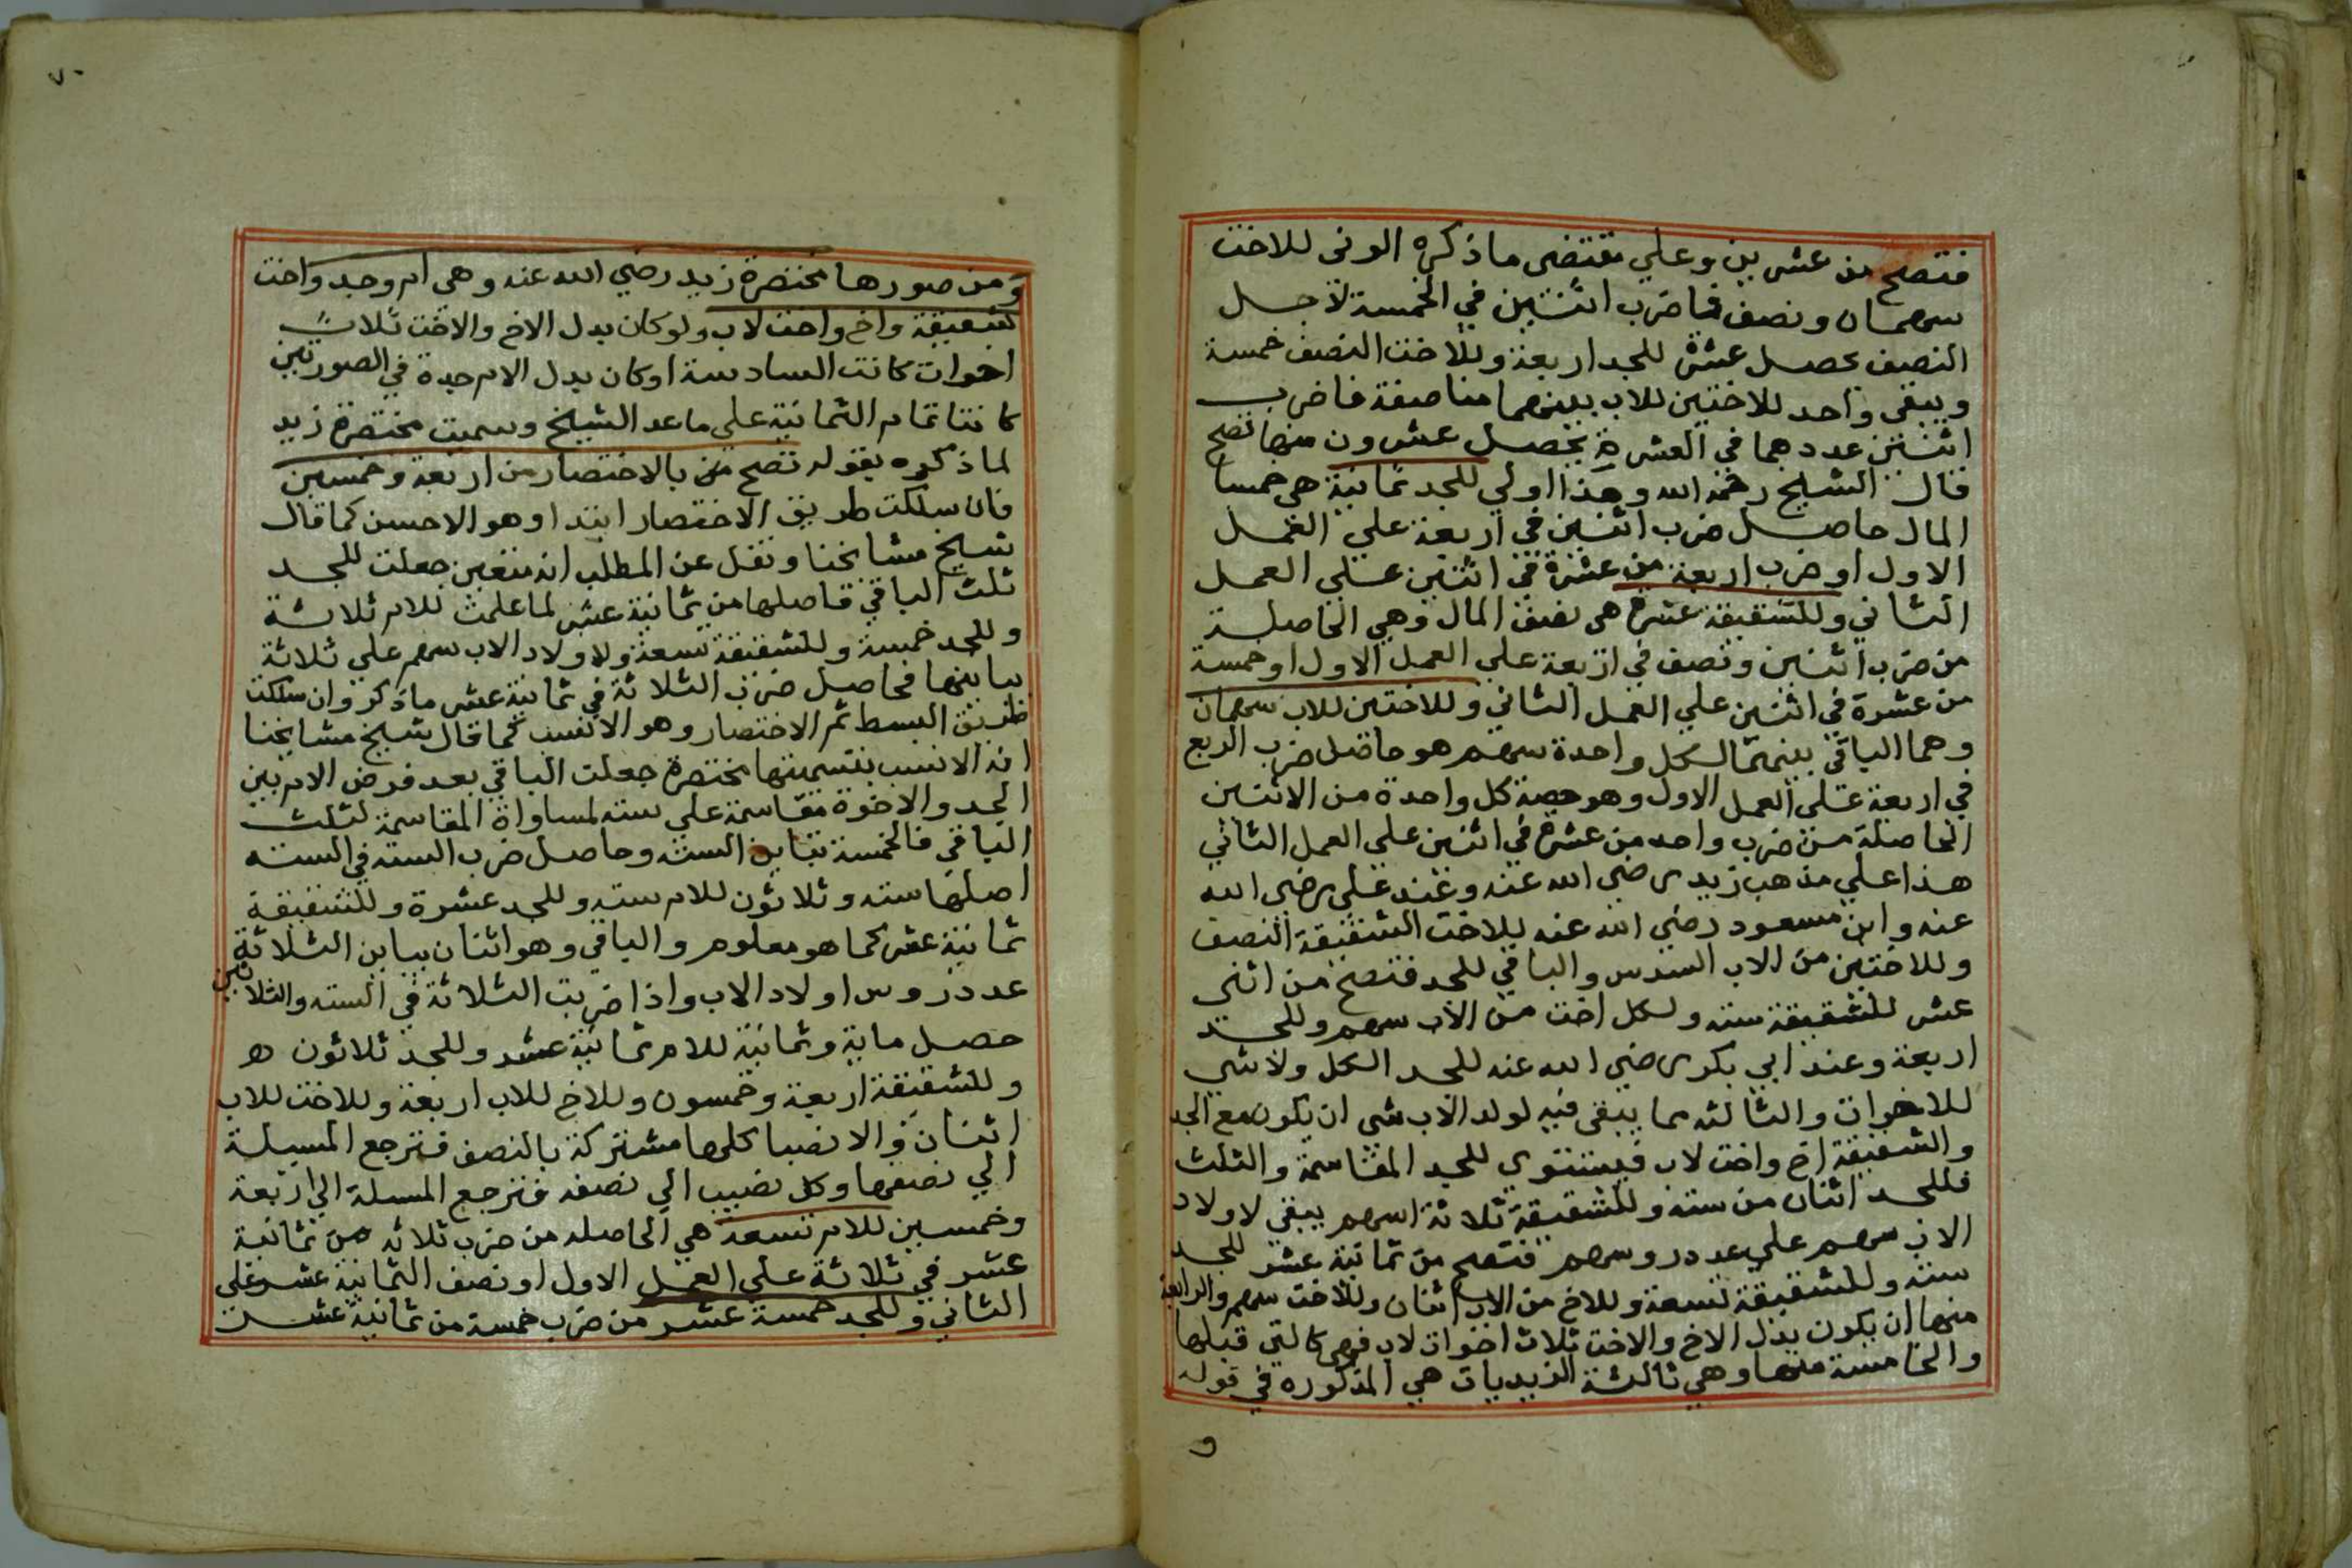 فتصح من عشرين وعلي مقتضى ما ذكره الوني للاخت
سهمان ونصف فاضرب اثنين في الخمسة لاجل
النصف يحصل عشرة للجد اربعة وللاخت النصف خمسة
ويبقى واحد للاختين للاب بينهما مناصفة فاضرب
اثنين عددهما في العشرة يحصل عشرون منها تصح
قال الشيخ رحمه الله وهذا اولي للجد ثمانية هي خمسا
المال حاصل ضرب اثنين في اربعة علي العمل
الاول او ضرب اربعة من عشرة في اثنين علي العمل
الثاني وللشقيقة عشرة هي نصف المال وهي الحاصلة
من ضرب اثنين ونصف في اربعة علي العمل الاول او خمسة
من عشرة في اثنين علي العمل الثاني وللاختين للاب سهمان
وهما الباقي بينهما لكل واحدة سهم هو حاصل ضرب الربع
في اربعة علي العمل الاول وهو حصة كل واحدة من الاثنين
الحاصلة من ضرب واحد من عشرة في اثنين علي العمل الثاني
هذا علي مذهب زيد رضي الله عنه وعند علي رضي الله
عنه وابن مسعود رضي الله عنه للاخت الشقيقة النصف
وللاختين من الاب السدس والباقي للجد فتصح من اثني
عشر للشقيقة سته ولكل اخت من الاب سهم وللجد
اربعة وعند ابي بكر رضي الله عنه للجد الكل ولا شي
للاخوات والثالثه مما يبقى فيه لولد الاب شي ان يكون مع الجد
والشقيقة اخ واخت لاب فيستوي للجد المقاسمة والثلث
فللجد اثنان من سته وللشقيقة ثلاثة اسهم يبقي لاولاد
الاب سهم علي عدد روسهم فتصح من ثمانية عشر للجد
سته وللشقيقة تسعة وللاخ من الاب اثنان وللاخت سهم والرابعة
منها ان يكون بدل الاخ والاخت ثلاث اخوات لاب فهي كالتي قبلها
والخامسة منها وهي ثالثة الزيديات هي المذكوره في قوله
و
٧٠
ومن صورها مختصرة زيد رضي الله عنه وهي ام وجد واخت
شقيقة واخ واخت لاب ولو كان بدل الاخ والاخت ثلاث
اخوات كانت السادسة او كان بدل الام جدة في الصورتين
كانتا تمام الثمانية علي ما عد الشيخ وسميت مختصرة زيد
لما ذكره بقوله تصح من بالاختصار من اربعة وخمسين
فان سلكت طريق الاختصار ابتدا وهو الاحسن كما قال
شيخ مشايخنا ونقل عن المطلب انه متعين جعلت للجد
ثلث الباقي فاصلها من ثمانية عشر لما علمت للام ثلاثة
وللجد خمسة وللشقيقة تسعة ولاولاد الاب سهم علي ثلاثة
يباينها فحاصل ضرب الثلاثة في ثمانية عشر ما ذكر وان سلكت
طريق البسط ثم الاختصار وهو الانسب كما قال شيخ مشايخنا
انه الانسب بتسميتها مختصرة جعلت الباقي بعد فرض الام بين
الجد والاخوة مقاسمة علي سته لمساواة المقاسمة لثلث
الباقي فالخمسة تباين الستة وحاصل ضرب السته في السته
اصلها سته وثلاثون للام سته وللجد عشرة وللشقيقة
ثمانية عشر كما هو معلوم والباقي وهو اثنان يباين الثلاثة
عدد روس اولاد الاب واذا ضربت الثلاثة في السته والثلاثين
حصل ماية وثمانية للام ثمانية عشر وللجد ثلاثون ه
وللشقيقة اربعة وخمسون وللاخ للاب اربعة وللاخت للاب
اثنان والانصبا كلها مشتركة بالنصف فترجع المسيلة
الي نصفها وكل نصيب الي نصفه فترجع المسلة الي اربعة
وخمسين للام تسعه هي الحاصله من ضرب ثلاثه من ثمانية
عشر في ثلاثة علي العمل الاول او نصف الثمانية عشر علي
الثاني وللجد خمسة عشر من ضرب خمسة من ثمانية عشر